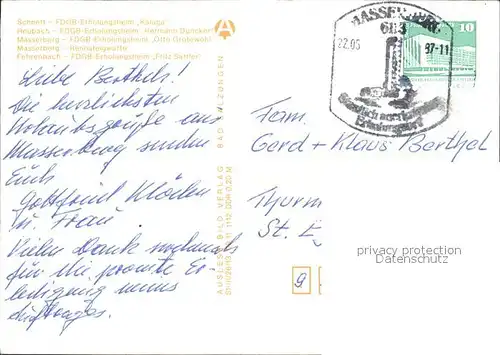 Schnett - FDGB-Erholungsheim "Kaluga"
Heubach - FDGB-Erholungsheim "Hermann Duncker"
Masserberg - FDGB-Erholungsheim "Otto Grotewohl"
Masserberg - Rennsteigwarte
Fehrenbach - FDGB-Erholungsheim "Fritz Sattler"
MASSERBERG
6113
22.05
87-11
Staatlich anerkannter
Erholungsort
10
Liebe Berthels!
Die herzlichsten
Urlaubsgrüße aus
Masserberg senden
Euch
Gottfried
u. Frau.
Vielen Dank nochmals
für die promte Er-
ledigung meines
Auftrages.
AUSLESE-BILD-VERLAG BAD SALZUNGEN
DDR 0,20 M
Fam.
Gerd + Klaus Berthel
Thurm
St.
9
privacy protection
Datenschutz